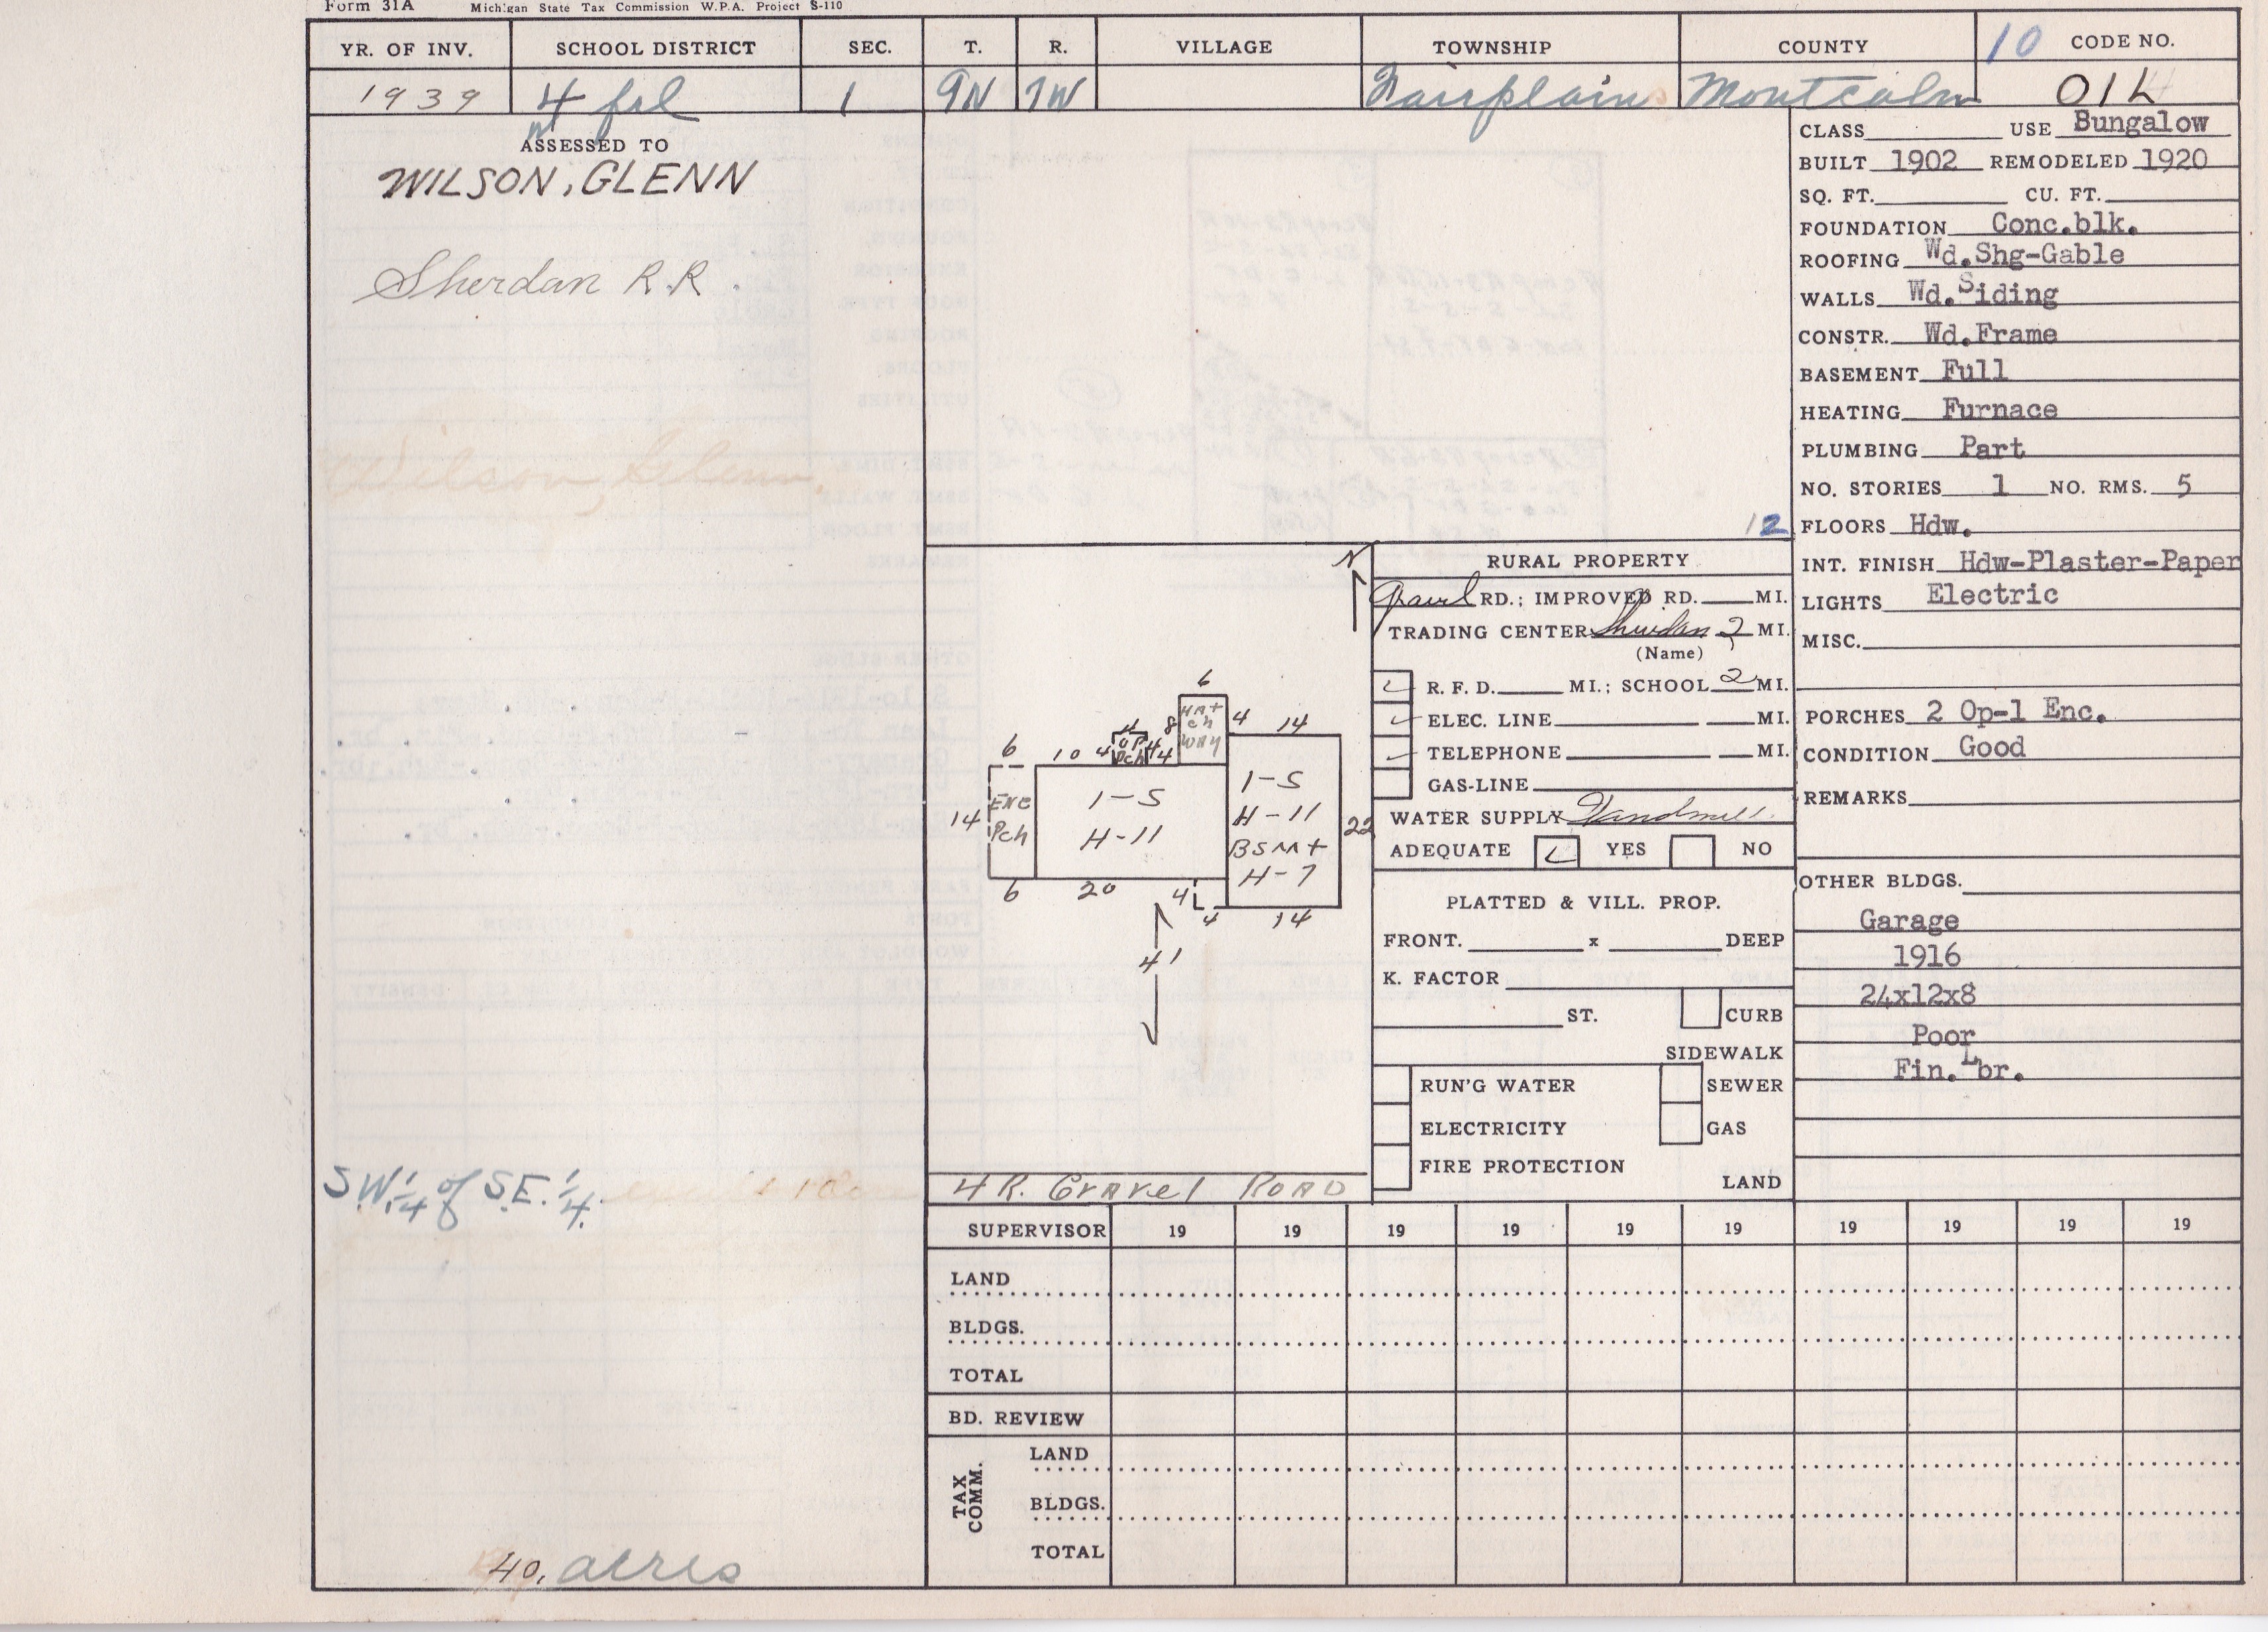 Form 31A Michigan State Tax Commission W.P.A. Project S-110
YR. OF INV. SCHOOL DISTRICT SEC. T. R. VILLAGE TOWNSHIP COUNTY 10 CODE NO.
1939 4 fsl 1 9N 7W Fairplains Montcalm 01L
ASSESSED TO
WILSON, GLENN
Sherdan R.R.
Wilson, Glenn
S.W. 1/4 of S.E. 1/4.
40. acres
CLASS USE Bungalow
BUILT 1902 REMODELED 1920
SQ. FT. CU. FT.
FOUNDATION Conc.blk.
ROOFING Wd.Shg-Gable
WALLS Wd.Siding
CONSTR. Wd.Frame
BASEMENT Full
HEATING Furnace
PLUMBING Part
NO. STORIES 1 NO. RMS. 5
12
FLOORS Hdw.
INT. FINISH Hdw-Plaster-Paper
LIGHTS Electric
MISC.
PORCHES 2 Op-1 Enc.
CONDITION Good
REMARKS
OTHER BLDGS.
Garage
1916
24x12x8
Poor
Fin. Lbr.
N
6
6 10 4 4 OP Pch 4 4 8 HAT ch WAY 4 14
14 ENC Pch 1-S H-11 1-S H-11 BSMT H-7 22
6 20 4 4 14
41
4 R. Gravel ROAD
RURAL PROPERTY
Gravel RD.; IMPROVED RD. MI.
TRADING CENTER Sheridan 2 MI.
(Name)
R. F. D. MI.; SCHOOL 2 MI.
ELEC. LINE MI.
TELEPHONE MI.
GAS-LINE
WATER SUPPLY
ADEQUATE YES NO
PLATTED & VILL. PROP.
FRONT. x DEEP
K. FACTOR
ST. CURB
SIDEWALK
RUN'G WATER SEWER
ELECTRICITY GAS
FIRE PROTECTION
LAND
SUPERVISOR 19 19 19 19 19 19 19 19 19 19
LAND
BLDGS.
TOTAL
BD. REVIEW
TAX COMM.
LAND
BLDGS.
TOTAL